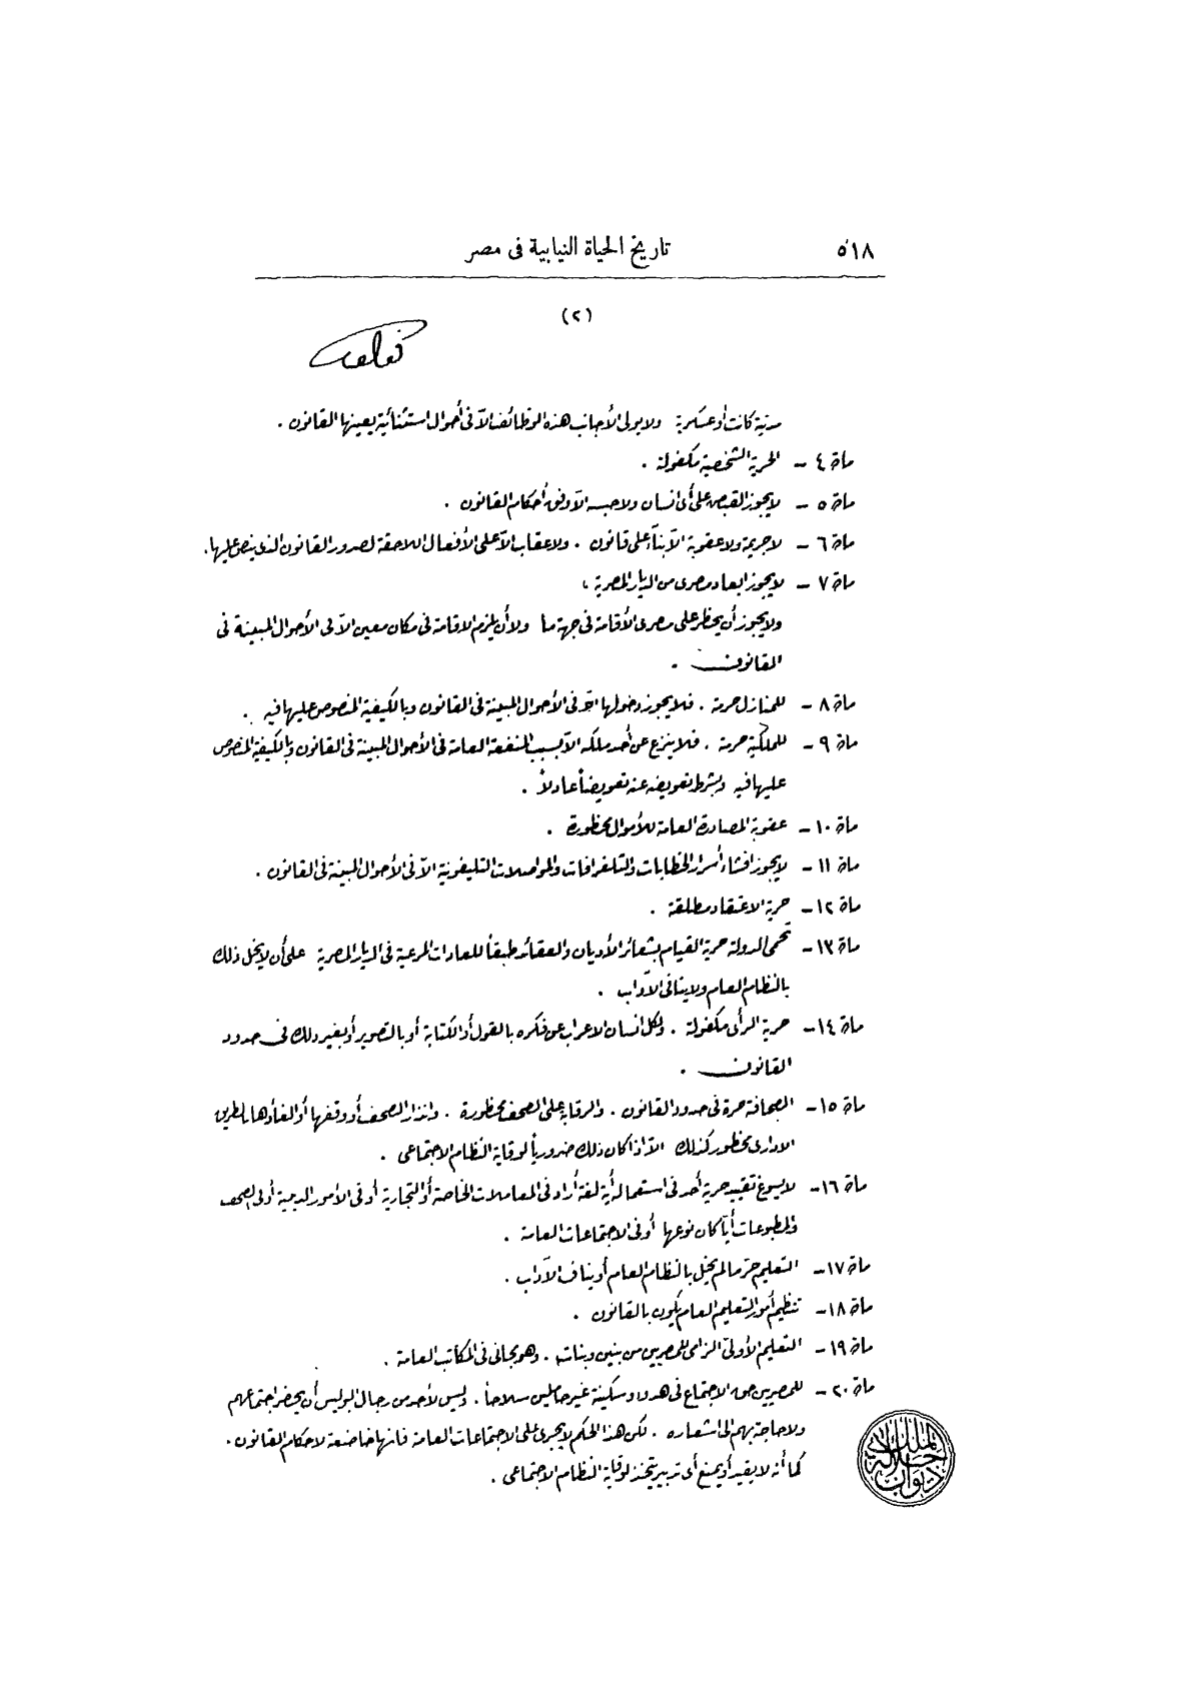 ٥١٨
تاريخ الحياة النيابية فى مصر
(٢)
مدنية كانت أو عسكرية ولا يولى الأجانب هذه الوظائف الاّ فى أحوال استثنائية يعينها القانون .
مادة ٤ – الحرية الشخصية مكفولة .
مادة ٥ – لا يجوز القبض على أى انسان ولا حبسه الاّ وفق أحكام القانون .
مادة ٦ – لا جريمة ولا عقوبة الاّ بناءً على قانون . ولا عقاب الاّ على الأفعال اللاحقة لصدور القانون الذى ينص عليها .
مادة ٧ – لا يجوز ابعاد مصرى من الديار المصرية .
ولا يجوز أن يحظر على مصرى الأقامة فى جهة ما ولا أن يلزم الاقامة فى مكان معين الاّ فى الأحوال المبينة فى
القانون .
مادة ٨ – للمنازل حرمة . فلا يجوز دخولها الاّ فى الأحوال المبينة فى القانون وبالكيفية المنصوص عليها فيه .
مادة ٩ – للملكية حرمة . فلا ينزع عن أحد ملكه الاّ بسبب المنفعة العامة فى الأحوال المبينة فى القانون وبالكيفية المنصوص
عليها فيه وبشرط تعويضه عنه تعويضاً عادلاً .
مادة ١٠ – عقوبة المصادرة العامة للأموال محظورة .
مادة ١١ – لا يجوز افشاء أسرار الخطابات والتلغرافات والمواصلات التليفونية الاّ فى الأحوال المبينة فى القانون .
مادة ١٢ – حرية الاعتقاد مطلقة .
مادة ١٣ – تحمى الدولة حرية القيام بشعائر الأديان والعقائد طبقاً للعادات المرعية فى الديار المصرية على أن لا يخل ذلك
بالنظام العام ولا ينافى الآداب .
مادة ١٤ – حرية الرأى مكفولة . ولكل انسان الاعراب عن فكره بالقول أو الكتابة أو بالتصوير أو بغير ذلك فى حدود
القانون .
مادة ١٥ – الصحافة حرة فى حدود القانون . والرقابة على الصحف محظورة . وانذار الصحف أو وقفها أو الغاؤها بالطريق
الادارى محظور كذلك الاّ اذا كان ذلك ضرورياً لوقاية النظام الاجتماعى .
مادة ١٦ – لا يسوغ تقييد حرية أحد فى استعمال أية لغة أراد فى المعاملات الخاصة أو التجارية أو فى الأمور الدينية أو فى الصحف
والمطبوعات أياً كان نوعها أو فى الاجتماعات العامة .
مادة ١٧ – التعليم حرّ ما لم يخل بالنظام العام أو ينافِ الآداب .
مادة ١٨ – تنظيم أمور التعليم العام يكون بالقانون .
مادة ١٩ – التعليم الأولىّ الزامى للمصريين من بنين وبنات . وهو مجانى فى المكاتب العامة .
مادة ٢٠ – للمصريين حق الاجتماع فى هدوء وسكينة غير حاملين سلاحاً . وليس لأحد من رجال البوليس أن يحضر اجتماعهم
ولا حاجة بهم الى اشعاره . لكن هذا الحكم لا يجرى على الاجتماعات العامة فانها خاضعة لاحكام القانون .
كما أنه لا يقيد أو يمنع أى تدبير يتخذ لوقاية النظام الاجتماعى .
ديوان جلالة الملك